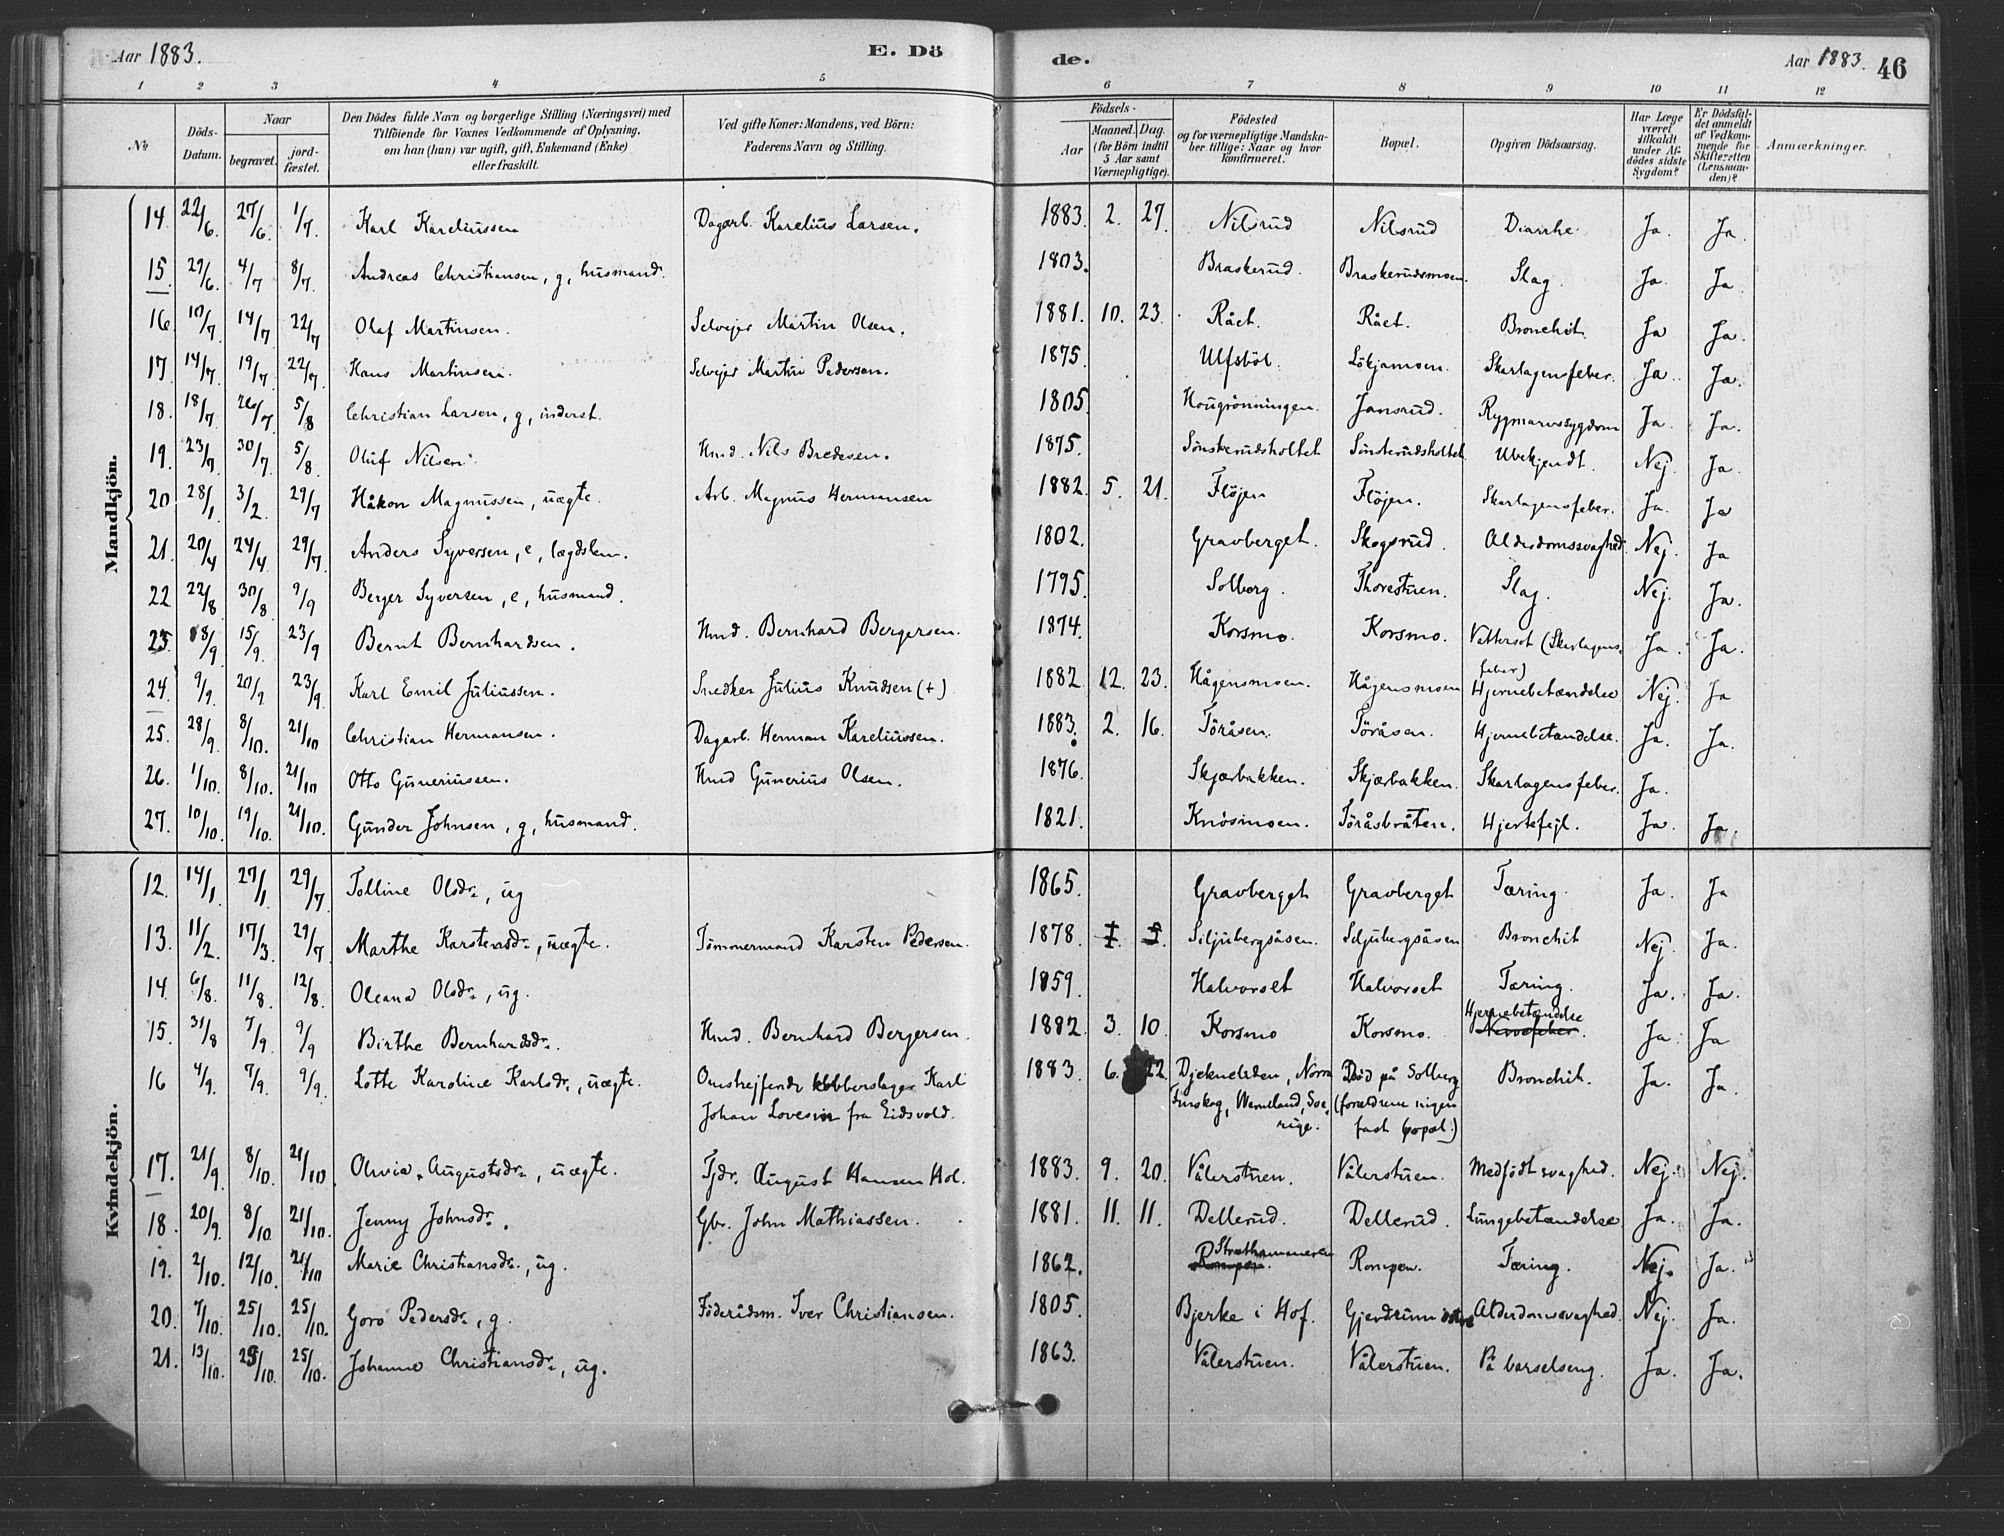 Aar 1883. E. Dö
de. Aar 1883. 46
1 2 3 4 5 6 7 8 9 10 11 12
№ Döds-Datum. Naar begravet. jord-fæstet. Den Dödes fulde Navn og borgerlige Stilling (Næringsvei) med Tilföiende for Voxnes Vedkommende af Oplysning, om han (hun) var ugift, gift, Enkemand (Enke) eller fraskilt. Ved gifte Koner: Mandens, ved Börn: Faderens Navn og Stilling. Födsels- Aar Maaned. Dag. (for Börn indtil 5 Aar samt Værnepligtige). Födested og for værnepligtige Mandska-ber tillige: Naar og hvor konfirmeret. Bopæl. Opgiven Dödsaarsag. Har Læge været tilkaldt under Af-dödes sidste Sygdom? Er Dödsfal-det anmeldt af Vedkom-mende for Skifteretten (Lensman-den)? Anmærkninger.
Mandkjön.
14. 22/6. 27/6. 1/7. Karl Kareliussen Dagarb. Karelius Larsen. 1883. 2. 27. Nilsrud Nilsrud Diarrhe. Ja. Ja.
15. 29/6. 4/7 8/7. Andreas Christiansen, g, husmand. 1803. Braskerud. Braskerudsmoen. Slag. Ja. Ja
16. 10/7. 14/7 22/7 Olaf Martinsen. Selvejer Martin Olsen. 1881. 10. 23. Råct. Råct. Bronchit. Ja Ja.
17. 14/7. 19/7 22/7. Hans Martinsen. Selvejer Martin Pedersen. 1875. Ulfsböl. Lökjamoen. Skarlagensfeber. Ja. Ja.
18. 18/7. 26/7 5/8 Christian Larsen, g, inderst. 1805. Hougrönningen. Jansrud. Rygmarvssygdom Ja. Ja.
19. 23/7 30/7. 5/8. Oluf Nilsen. Hmd. Nils Bredesen. 1875. Sönskerudsholtet Sönsterudsholtet. Ubekjendt. Nej. Ja.
20 28/1 3/2. 29/7 Håkon Magnussen, uægte. Arb. Magnus Hermansen 1882. 5. 21. Flöjen Flöjen. Skarlagensfeber. Ja. Ja
21. 20/4 24/4. 29/7. Anders Syversen, e, lægdslem. 1802. Gravberget. Skogsrud. Alderdomssvaghed. Nej. Ja
22 22/8 30/8 9/9 Berger Syversen, e, husmand. 1795. Solberg. Thorestuen. Slag. Nej. Ja.
23. 8/9 15/9. 23/9 Bernt Bernhardsen. Hmd. Bernhard Bergersen. 1874. Korsmo. Korsmo. Vattersot (Skarlagens-feber) Ja. Ja.
24. 9/9. 20/9 23/9. Karl Emil Juliussen. Snedker Julius Knudsen (+) 1882 12. 23. Hågensmoen. Hågensmoen Hjernebetændelse Nej. Ja
25. 28/9. 8/10. 21/10 Christian Hermansen. Dagarb. Herman Kareliussen. 1883. 2. 16. Töråsen. Töråsen. Hjernebetændelse. Ja. Ja.
26. 1/10. 8/10. 21/10 Otto Guneriussen. Hmd Gunerius Olsen. 1876. Skjærbakken. Skjærbakken. Skarlagensfeber. Ja.
27. 10/10. 19/10. 21/10. Gunder Johnsen, g, husmand. 1821. Knösmoen. Töråsbråten. Hjertefejl. Ja. Ja.
Kvindekjön.
12. 14/1. 27/1. 29/7 Tolline Olsdr., ug 1865. Gravberget Gravberget Tæring. Ja. Ja
13. 11/2. 17/3. 29/7 Marthe Karstensdr., uægte. Tömmermand Karsten Pedersen. 1878. Siljubergsåsen. Siljubergsåsen Bronchit Nej. Ja.
14 6/8. 11/8. 12/8. Oleana Olsdr., ug. 1859. Halvorset Halvorset Tæring. Ja. Ja.
15. 31/8 7/9. 9/9 Birthe Bernhardsdr. Hmd. Bernhard Bergersen. 1882. 3. 10. Korsmo Korsmo. Hjernebetændelse Nervefeber. Ja. Ja
16 4/9. 7/9. 9/9. Lotte Karoline Karlsdr., uægte. Omstrejfende kobberslager Karl 1883. 6. 22. Djekneliden, Norra Död på Solberg Bronchit. Ja. Ja.
Johan Lovesin fra Eidsvold. Finskog, Wermland, Sve-rige. (forældrene ingen fast bopæl.)
17. 21/9. 8/10. 21/10 Olivia Augustsdr., uægte. Tjdr. August Hansen Hol. 1883. 9. 20. Vålerstuen. Vålerstuen. Medfödt svaghed. Nej. Nej.
18. 20/9. 8/10 21/10. Jenny Johnsdr. Gbr. John Mathiassen. 1881. 11. 11. Dellerud. Dellerud. Lungebetændelse Ja. Ja.
19. 2/10. 12/10. 21/10 Marie Christiansdr., ug. 1862. Strethammeren Rompen. Rompen. Tæring. Nej. Ja.
20. 7/10. 25/10. 25/10. Goro Pedersdr., g. Föderådsm. Iver Christiansen. 1805. Bjerke i Hof. Gjerdrum östre Alderdomssvaghed. Nej. Ja.
21. 13/10. 25/10. 25/10. Johanne Christiansdr., ug. 1863. Vålerstuen. Vålerstuen. På barselseng. Ja. Ja.